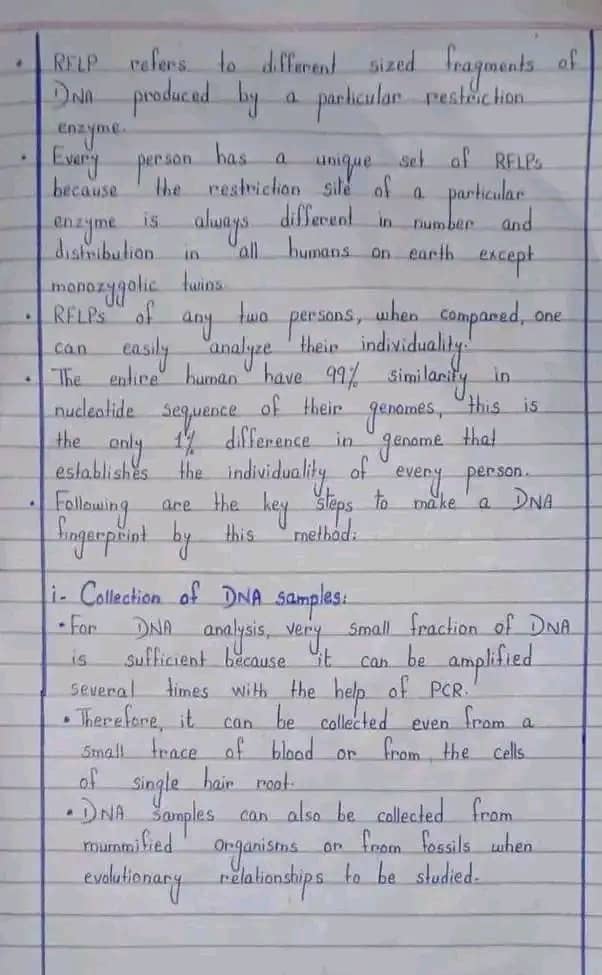 • RFLP refers to different sized fragments of
DNA produced by a particular restriction
enzyme.
• Every person has a unique set of RFLPs
because the restriction site of a particular
enzyme is always different in number and
distribution in all humans on earth except
monozygotic twins.
• RFLPs of any two persons, when compared, one
can easily analyze their individuality.
• The entire human have 99% similarity in
nucleotide sequence of their genomes, this is
the only 1% difference in genome that
establishes the individuality of every person.
• Following are the key steps to make a DNA
fingerprint by this method:
i- Collection of DNA samples:
• For DNA analysis, very small fraction of DNA
is sufficient because it can be amplified
several times with the help of PCR.
• Therefore, it can be collected even from a
small trace of blood or from the cells
of single hair root.
• DNA samples can also be collected from
mummified organisms or from fossils when
evolutionary relationships to be studied.